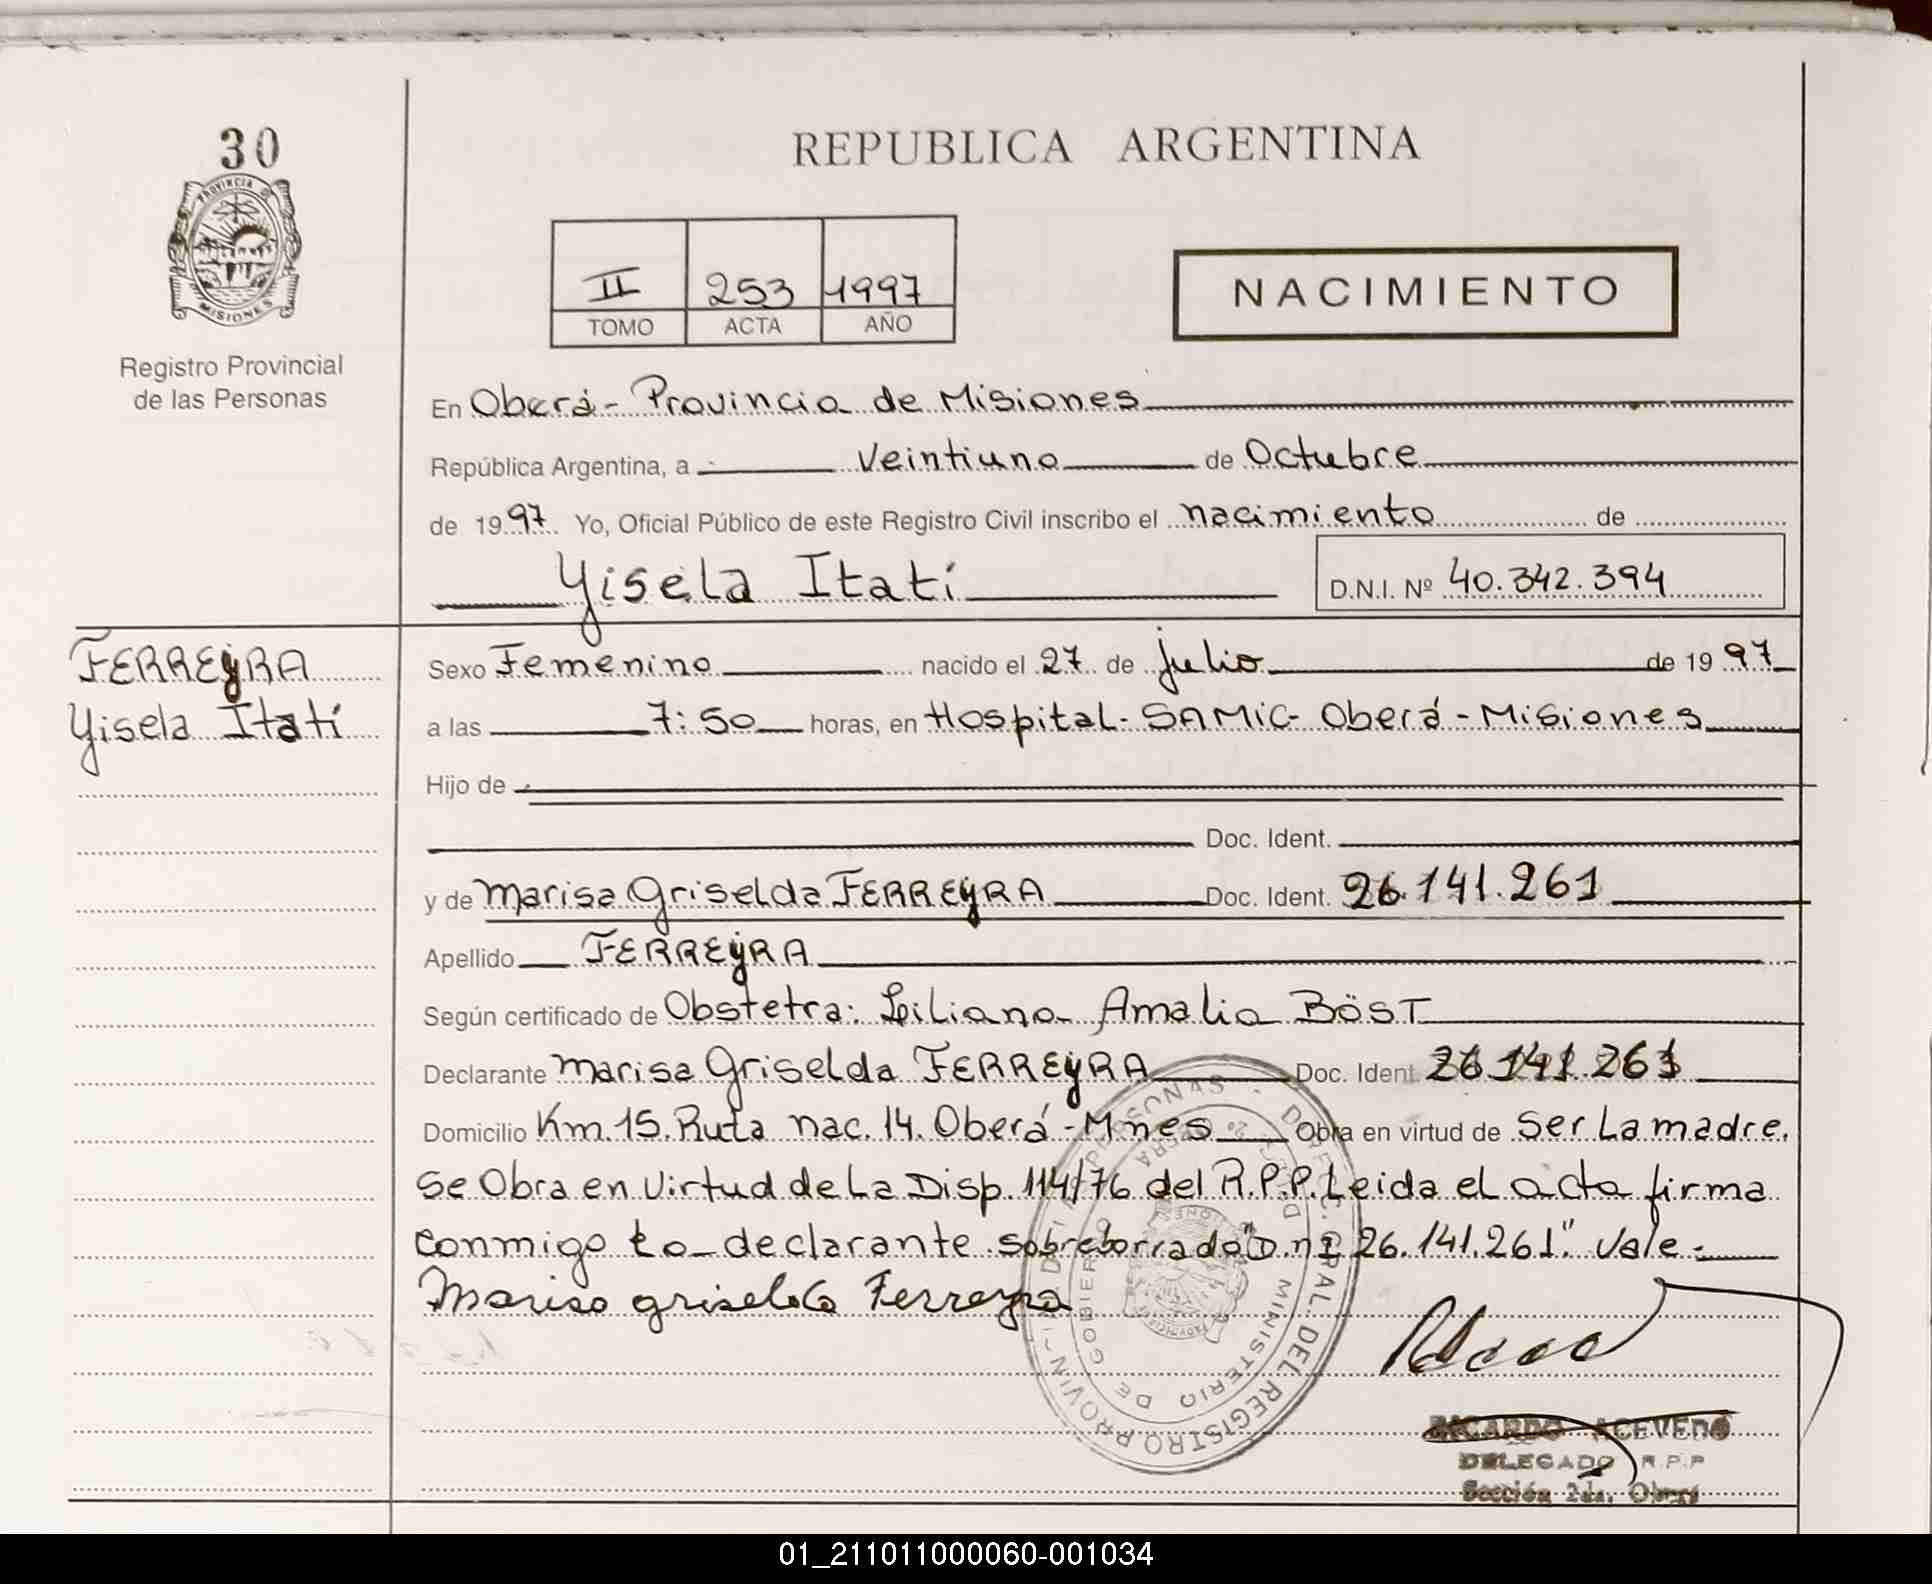 30
REPUBLICA ARGENTINA
PROVINCIA DE
MISIONES
II 253 1997
TOMO ACTA AÑO
NACIMIENTO
Registro Provincial
de las Personas
En Oberá - Provincia de Misiones
República Argentina, a Veintiuno de Octubre
de 1997. Yo, Oficial Público de este Registro Civil inscribo el nacimiento de
Yisela Itatí
D.N.I. Nº 40.342.394
FERREyRA
Yisela Itatí
Sexo Femenino nacido el 27 de julio de 1997
a las 7:50 horas, en Hospital - SAMIC - Oberá - Misiones
Hijo de
Doc. Ident.
y de Marisa Griselda FERREyRA Doc. Ident. 26.141.261
Apellido FERREyRA
Según certificado de Obstetra: Liliana Amalia BÖST
Declarante Marisa Griselda FERREyRA Doc. Ident. 26.141.261
Domicilio Km. 15. Ruta nac. 14. Oberá - Mnes Obra en virtud de ser La madre.
Se Obra en Virtud de La Disp. 114/76 del R.P.P. Leida el acta firma
conmigo La declarante. sobreborrado "D.n.I 26.141.261". Vale.
Marisa griselda Ferreyra
DIREC. GRAL. DEL REGISTRO PROVIN
PERSONAS
MINISTERIO DE GOBIERNO
RICARDO ACEVEDO
DELEGADO R.P.P
Sección 2da. Oberá
01_211011000060-001034